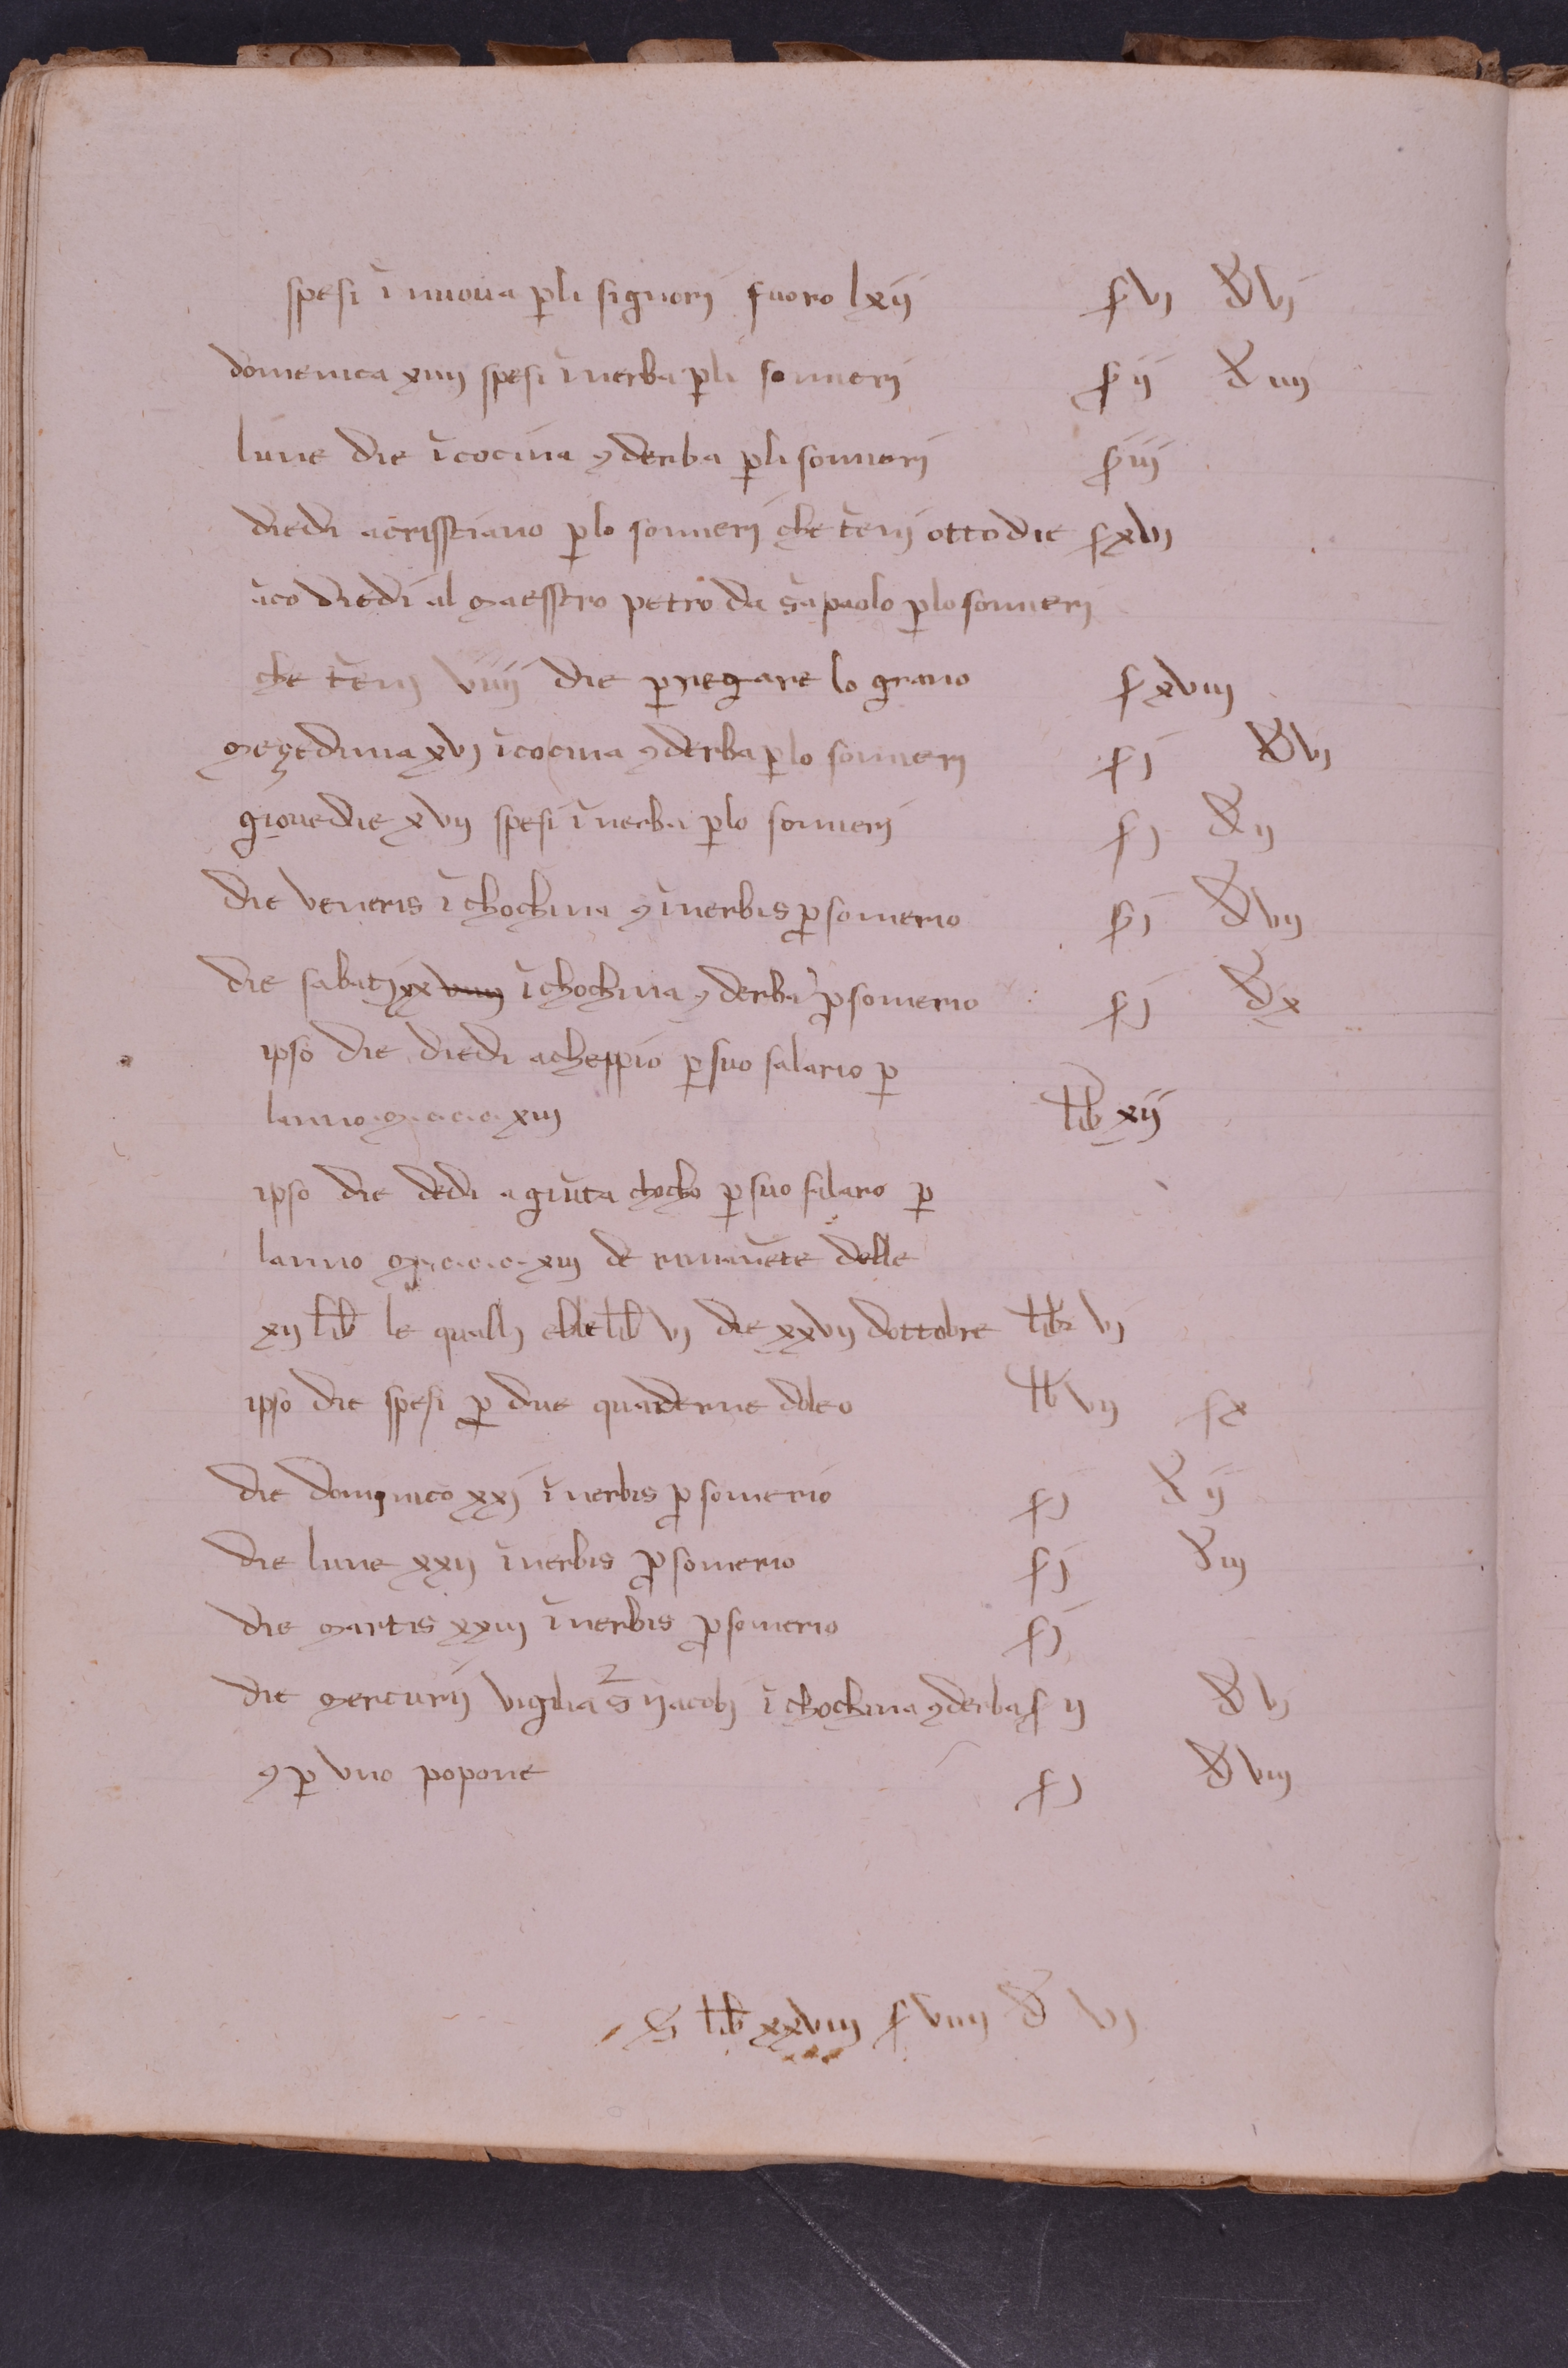 spesi ī nuova ꝑ li signorj fuoro lxij s vj d vj
domenica xiiij spesi ī nerba ꝑ li somerj s ij d iiij
lune die ī cocina ⁊ derba ꝑ li somerj s iij
diedi a crisstiano ꝑ lo somerj che tēnj otto die s xvj
āco diedi al maesstro petro da sā paolo ꝑ lo somerj
che tēnj viiij die ꝑ negare lo grano s xviij
meçedima xvj ī cocina ⁊ derba ꝑ lo somerj s j d vj
giovedie xvij spesi ī nerba ꝑ lo somerj s j d ij
die veneris ī chochina ⁊ ī nerbis ꝓ somerio s j d vij
die sabatj xx viiij ī chochina ⁊ derba ꝓ somerio s j d x
ipso die diedi a cheppio ꝑ suo salario ꝑ
lanno .m.c.c.c.xiij lib xij
ipso die dedi a giūta chocho ꝑ suo salaro ꝑ
lanno m.c.c.c.xiij de rimanēte delle
xij lib le qualj ebbe lib vj die xxvij dottobre lib vj
ipso die spesi ꝑ due quaderne doleo lb vij s x
die dominico xxj ī nerbis ꝓ somerio s j d ij
die lune xxij ī nerbis ꝓ somerio s j d iij
die martis xxiij ī nerbis ꝓ somerio s j
die mercurij vigilia s̄ ijacobj ī chochina ⁊ derba s ij d vj
⁊ ꝑ uno popone s j d viij
S lib xxviiij s viiij d vj